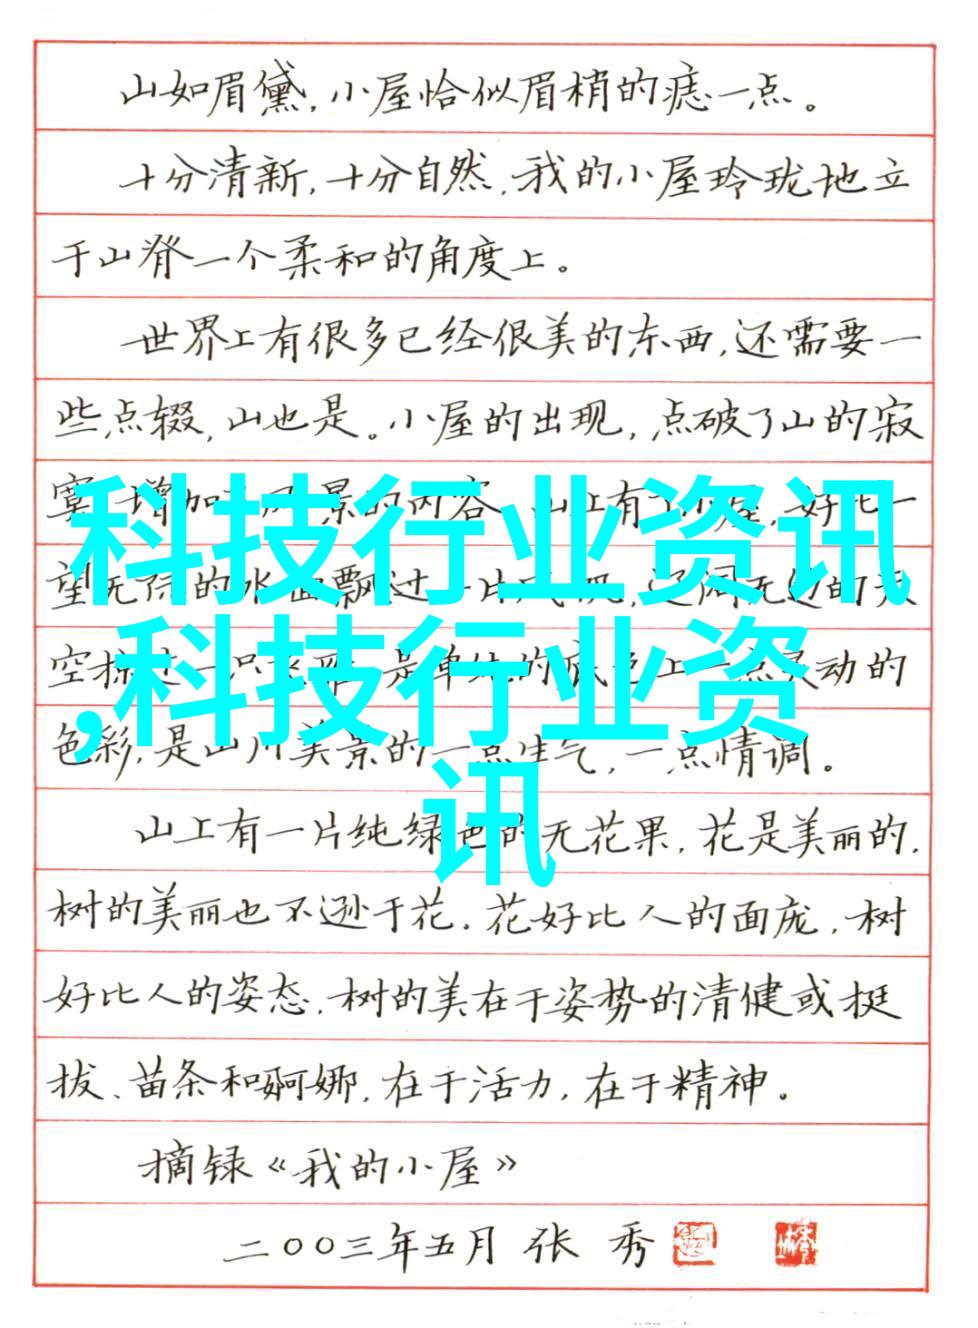 山如眉黛,小屋恰似眉梢的痣一点。
十分清新,十分自然,我的小屋玲珑地立
于山脊一个柔和的角度上。
世界上有很多已经很美的东西,还需要一
些点缀,山也是。小屋的出现,点破了山的寂
科技行业资讯
,科技行业资
讯
色彩,是山川美景的一点生气,一点情调。
山上有一片纯绿色的无花果,花是美丽的,
树的美丽也不逊于花。花好比人的面庞,树
好比人的姿态。树的美在于姿势的清健或挺
拔、苗条和婀娜,在于活力,在于精神。
摘録《我的小屋》
二〇〇三年五月 张 秀